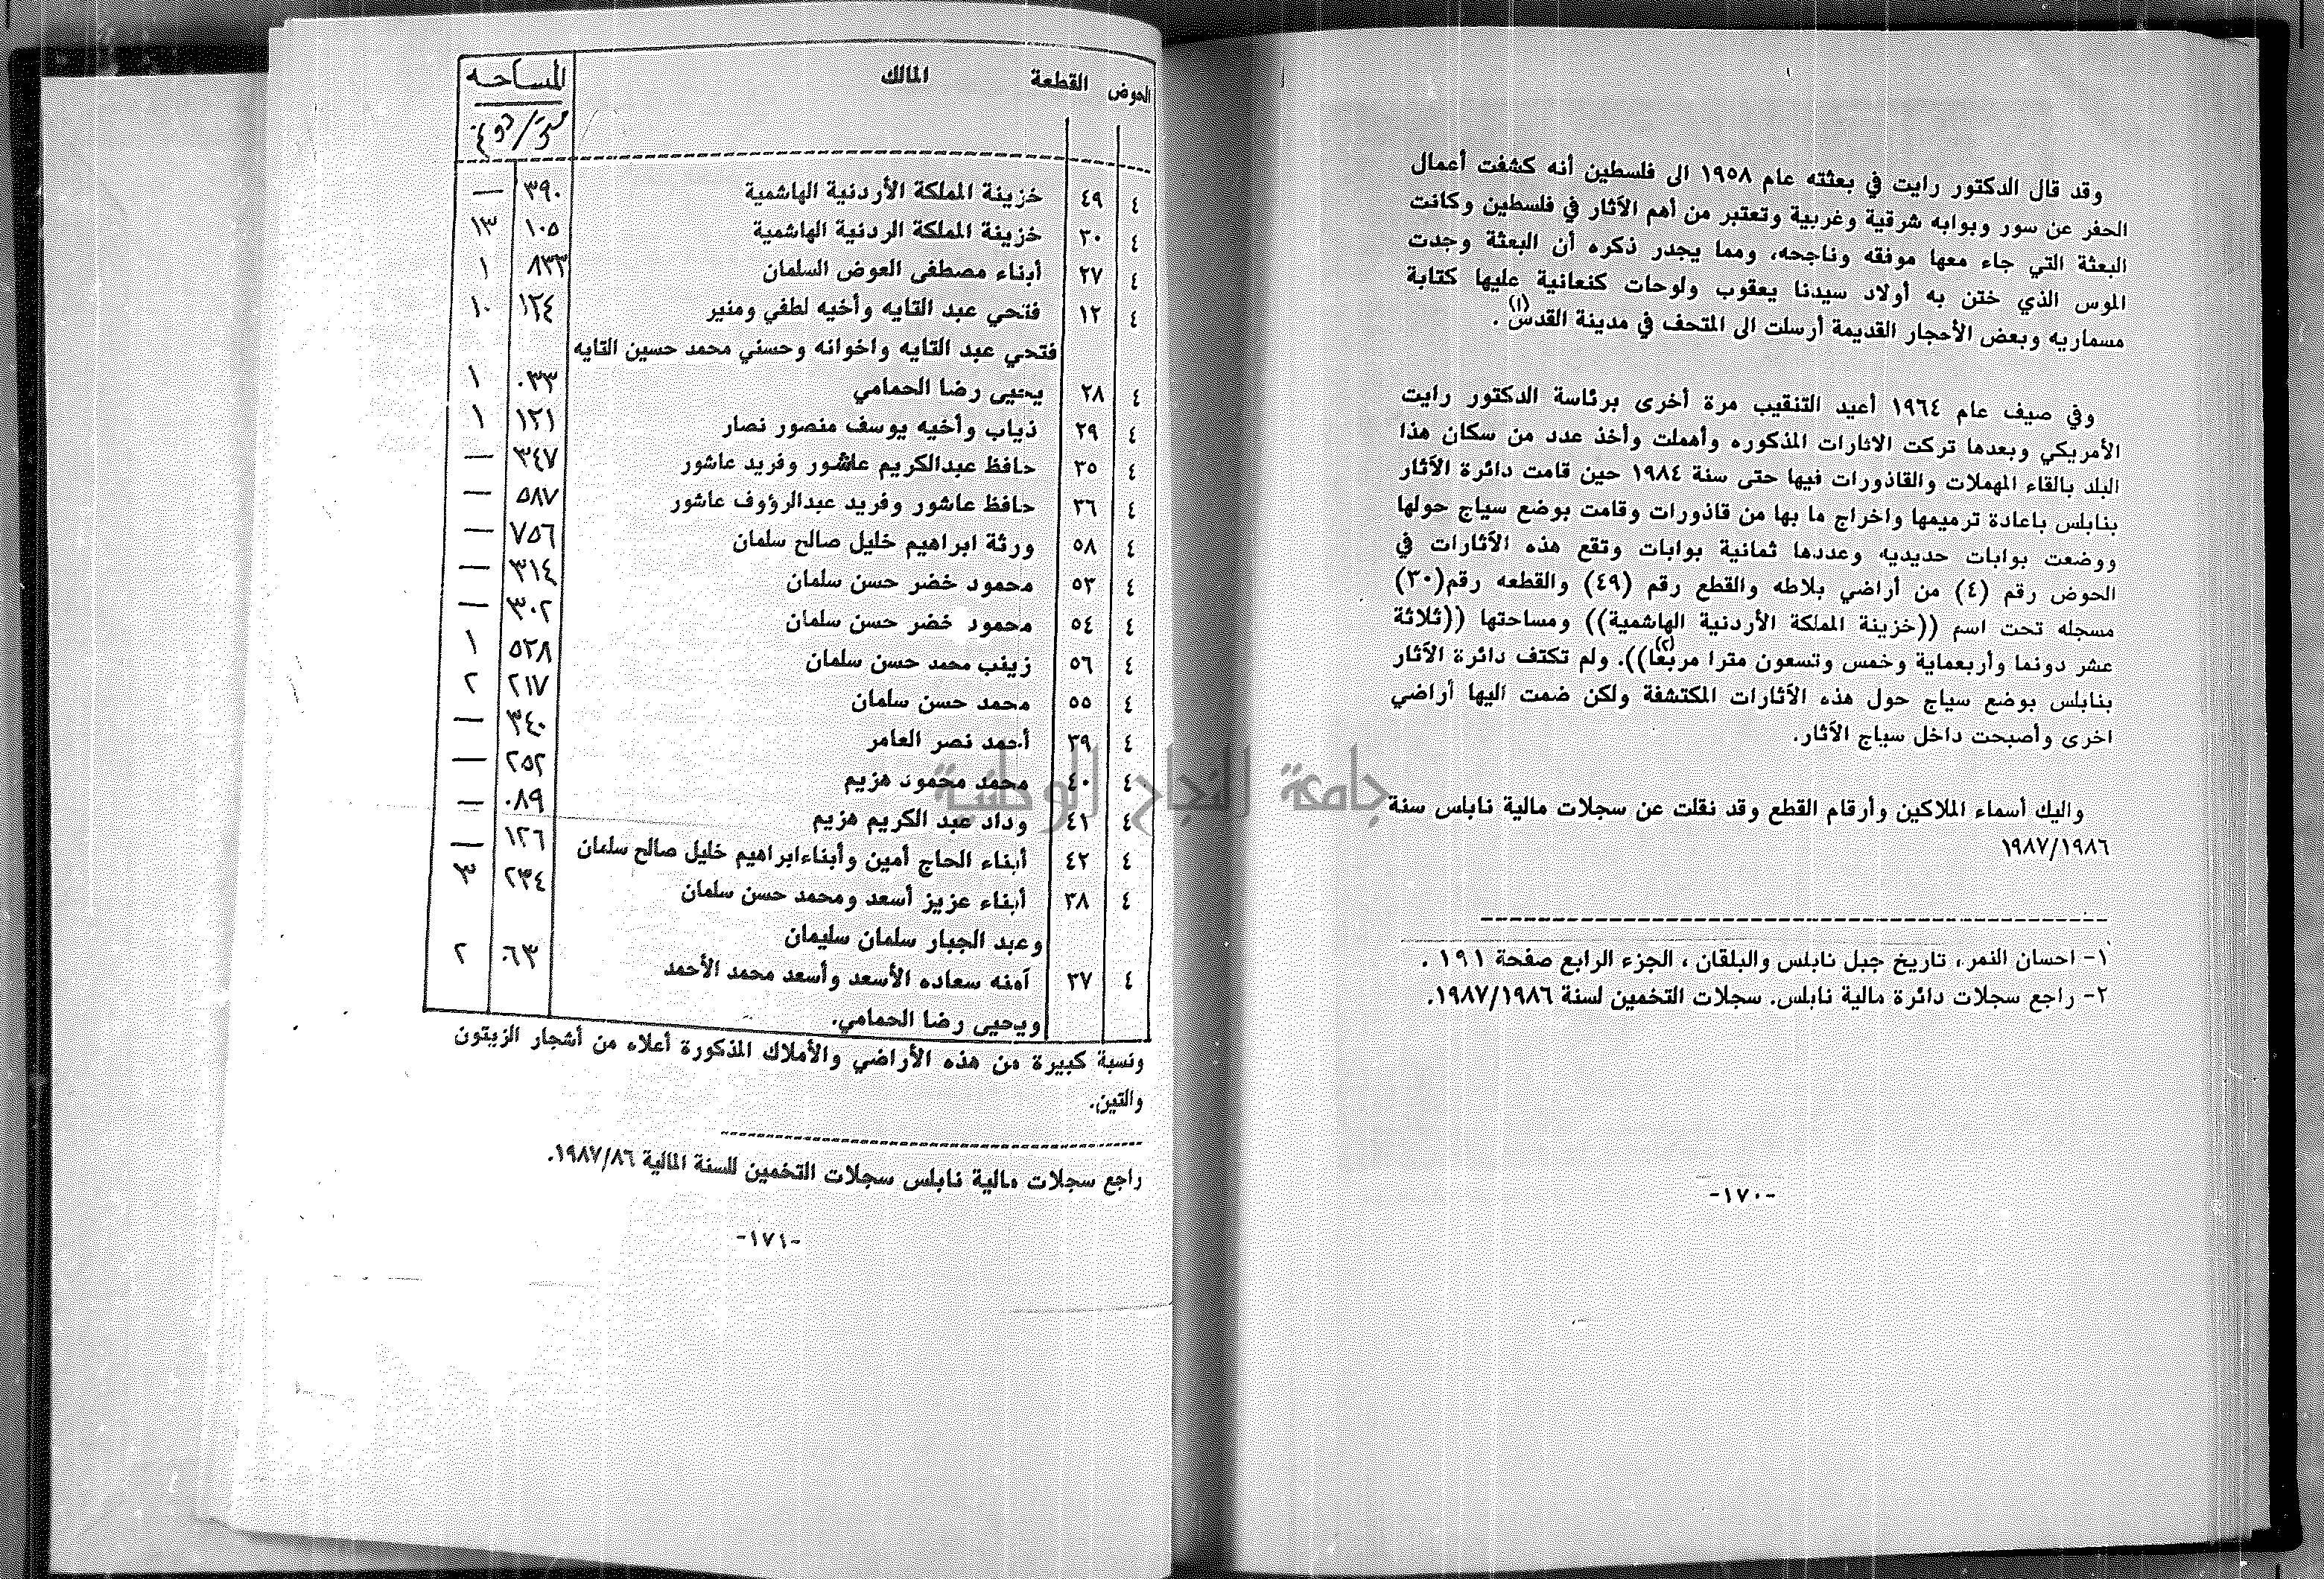 وقد قال الدكتور رايت في بعثته عام ١٩٥٨ الى فلسطين أنه كشفت أعمال
الحفر عن سور وبوابه شرقية وغربية وتعتبر من أهم الآثار في فلسطين وكانت
البعثة التي جاء معها موفقه وناجحه، ومما يجدر ذكره أن البعثة وجدت
الموس الذي ختن به أولاد سيدنا يعقوب ولوحات كنعانية عليها كتابة
مسماريه وبعض الأحجار القديمة أرسلت الى المتحف في مدينة القدس(١) .
وفي صيف عام ١٩٦٤ أعيد التنقيب مرة أخرى برئاسة الدكتور رايت
الأمريكي وبعدها تركت الاثارات المذكوره وأهملت وأخذ عدد من سكان هذا
البلد بالقاء المهملات والقاذورات فيها حتى سنة ١٩٨٤ حين قامت دائرة الآثار
بنابلس باعادة ترميمها واخراج ما بها من قاذورات وقامت بوضع سياج حولها
ووضعت بوابات حديديه وعددها ثمانية بوابات وتقع هذه الآثارات في
الحوض رقم (٤) من أراضي بلاطه والقطع رقم (٤٩) والقطعه رقم(٣٠)
مسجله تحت اسم ((خزينة المملكة الأردنية الهاشمية)) ومساحتها ((ثلاثة
عشر دونما وأربعماية وخمس وتسعون مترا مربعا(٢))). ولم تكتف دائرة الآثار
بنابلس بوضع سياج حول هذه الآثارات المكتشفة ولكن ضمت اليها أراضي
اخرى وأصبحت داخل سياج الآثار.
واليك أسماء الملاكين وأرقام القطع وقد نقلت عن سجلات مالية نابلس سنة
١٩٨٧/١٩٨٦
١- احسان النمر، تاريخ جبل نابلس والبلقان ، الجزء الرابع صفحة ١٩١ .
٢- راجع سجلات دائرة مالية نابلس. سجلات التخمين لسنة ١٩٨٧/١٩٨٦.
-١٧٠-
الحوض القطعة المالك المساحه
متر/دونم
٤ ٤٩ خزينة المملكة الأردنية الهاشمية ٣٩٠ —
٤ ٣٠ خزينة المملكة الردنية الهاشمية ١٠٥ ١٣
٤ ٢٧ أبناء مصطفى العوض السلمان ٨٣٣ ١
٤ ١٢ فتحي عبد التايه وأخيه لطفي ومنير ١٢٤ ١٠
فتحي عبد التايه واخوانه وحسني محمد حسين التايه
٤ ٢٨ يحيى رضا الحمامي ٠٣٣ ١
٤ ٢٩ ذياب وأخيه يوسف منصور نصار ١٢١ ١
٤ ٣٥ حافظ عبدالكريم عاشور وفريد عاشور ٣٤٧ —
٤ ٣٦ حافظ عاشور وفريد عبدالرؤوف عاشور ٥٨٧ —
٤ ٥٨ ورثة ابراهيم خليل صالح سلمان ٧٥٦ —
٤ ٥٣ محمود خضر حسن سلمان ٣١٤ —
٤ ٥٤ محمود خضر حسن سلمان ٣٠٢ —
٤ ٥٦ زينب محمد حسن سلمان ٥٢٨ ١
٤ ٥٥ محمد حسن سلمان ٢١٧ ٢
٤ ٣٩ أحمد نصر العامر ٣٤٠ —
٤ ٤٠ محمد محمود هزيم ٢٥٢ —
٤ ٤١ وداد عبد الكريم هزيم ٠٨٩ —
٤ ٤٢ أبناء الحاج أمين وأبناءابراهيم خليل صالح سلمان ١٢٦ —
٤ ٣٨ أبناء عزيز أسعد ومحمد حسن سلمان ٢٣٤ ٣
وعبد الجبار سلمان سليمان
٤ ٣٧ آمنه سعاده الأسعد وأسعد محمد الأحمد ٠٦٣ ٢
ويحيى رضا الحمامي.
ونسبة كبيرة من هذه الأراضي والأملاك المذكورة أعلاه من أشجار الزيتون
والتين.
راجع سجلات مالية نابلس سجلات التخمين للسنة المالية ١٩٨٧/٨٦.
-١٧١-
جامعة النجاح الوطنية